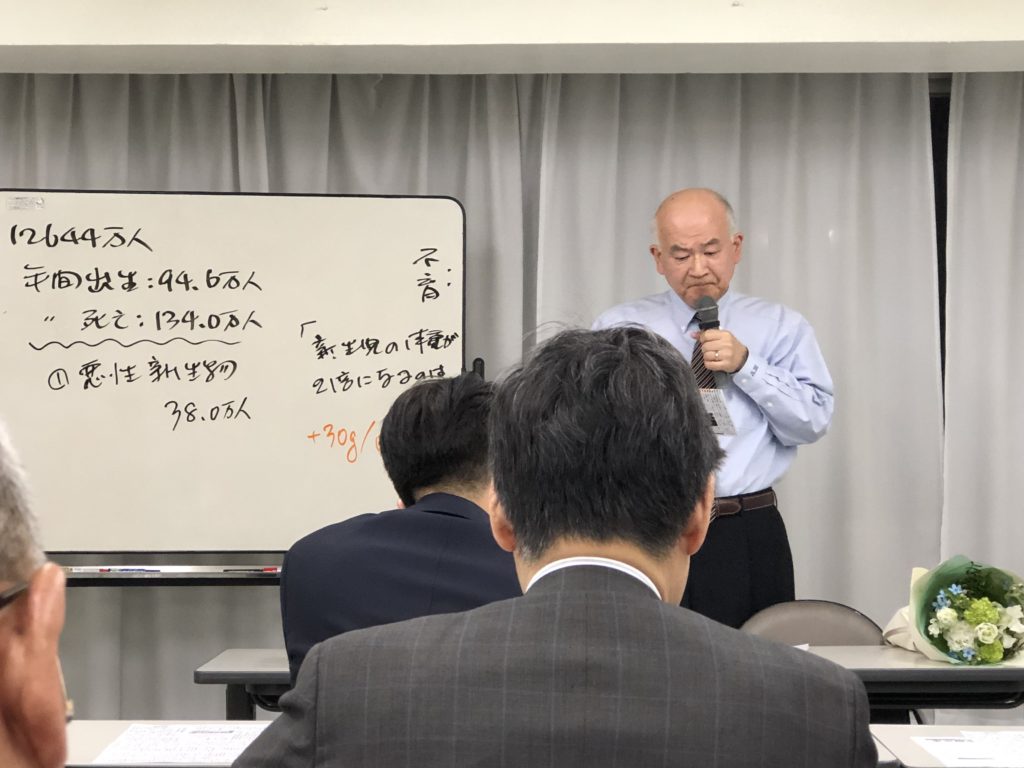 12644万人
年間出生：94.6万人
〃 死亡：134.0万人
① 悪性新生物
38.0万人
不育：
「新生児の体重が
2倍になるのは
+30g/